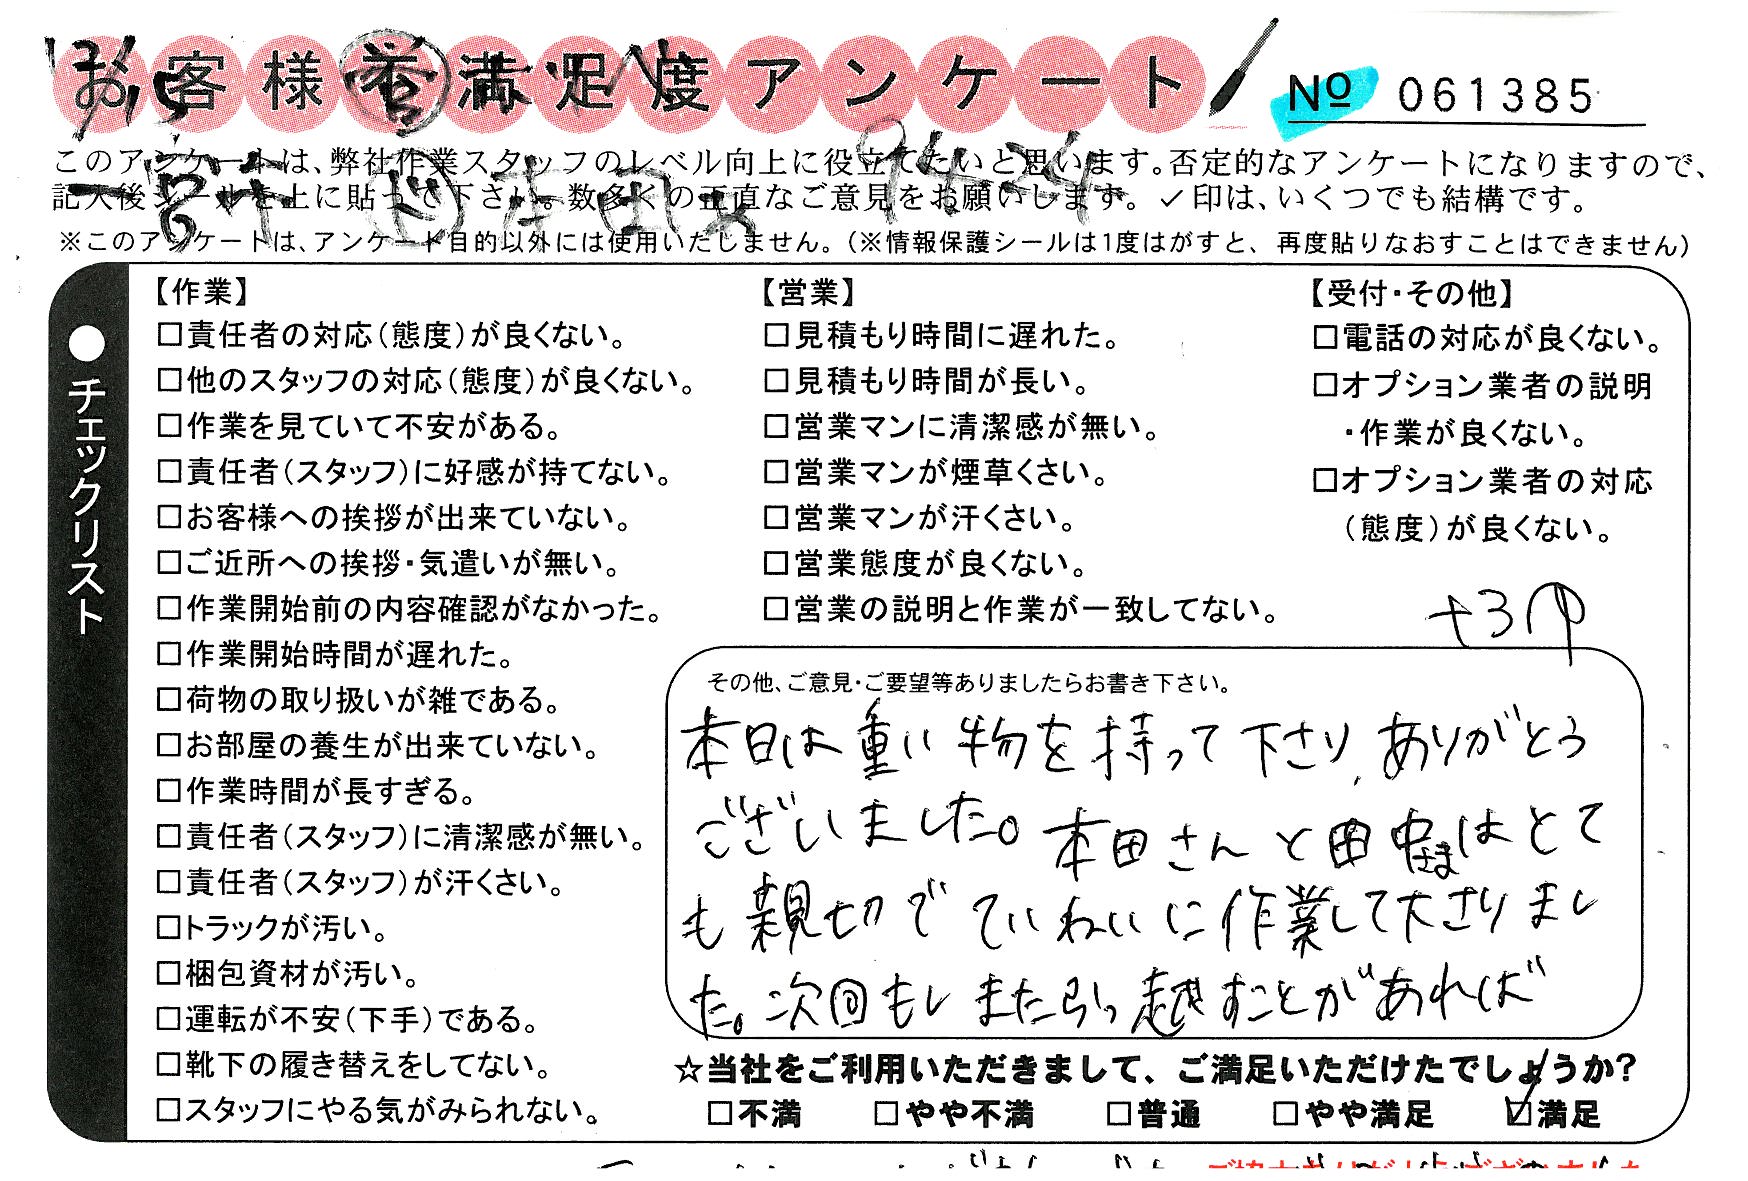 お客様満足度アンケート
№ 061385
このアンケートは、弊社作業スタッフのレベル向上に役立てたいと思います。否定的なアンケートになりますので、
記入後シールを上に貼って下さい。数多くの正直なご意見をお願いします。✓印は、いくつでも結構です。
※このアンケートは、アンケート目的以外には使用いたしません。(※情報保護シールは1度はがすと、再度貼りなおすことはできません)
●チェックリスト
【作業】
□責任者の対応(態度)が良くない。
□他のスタッフの対応(態度)が良くない。
□作業を見ていて不安がある。
□責任者(スタッフ)に好感が持てない。
□お客様への挨拶が出来ていない。
□ご近所への挨拶・気遣いが無い。
□作業開始前の内容確認がなかった。
□作業開始時間が遅れた。
□荷物の取り扱いが雑である。
□お部屋の養生が出来ていない。
□作業時間が長すぎる。
□責任者(スタッフ)に清潔感が無い。
□責任者(スタッフ)が汗くさい。
□トラックが汚い。
□梱包資材が汚い。
□運転が不安(下手)である。
□靴下の履き替えをしてない。
□スタッフにやる気がみられない。
【営業】
□見積もり時間に遅れた。
□見積もり時間が長い。
□営業マンに清潔感が無い。
□営業マンが煙草くさい。
□営業マンが汗くさい。
□営業態度が良くない。
□営業の説明と作業が一致してない。
【受付・その他】
□電話の対応が良くない。
□オプション業者の説明
・作業が良くない。
□オプション業者の対応
(態度)が良くない。
その他、ご意見・ご要望等ありましたらお書き下さい。
本日は重い物を持って下さり、ありがとう
ございました。本田さんと田中さまはとて
も親切でていねいに作業して下さりまし
た。次回もしまた引っ越すことがあれば
☆当社をご利用いただきまして、ご満足いただけたでしょうか?
□不満 □やや不満 □普通 □やや満足 ☑満足